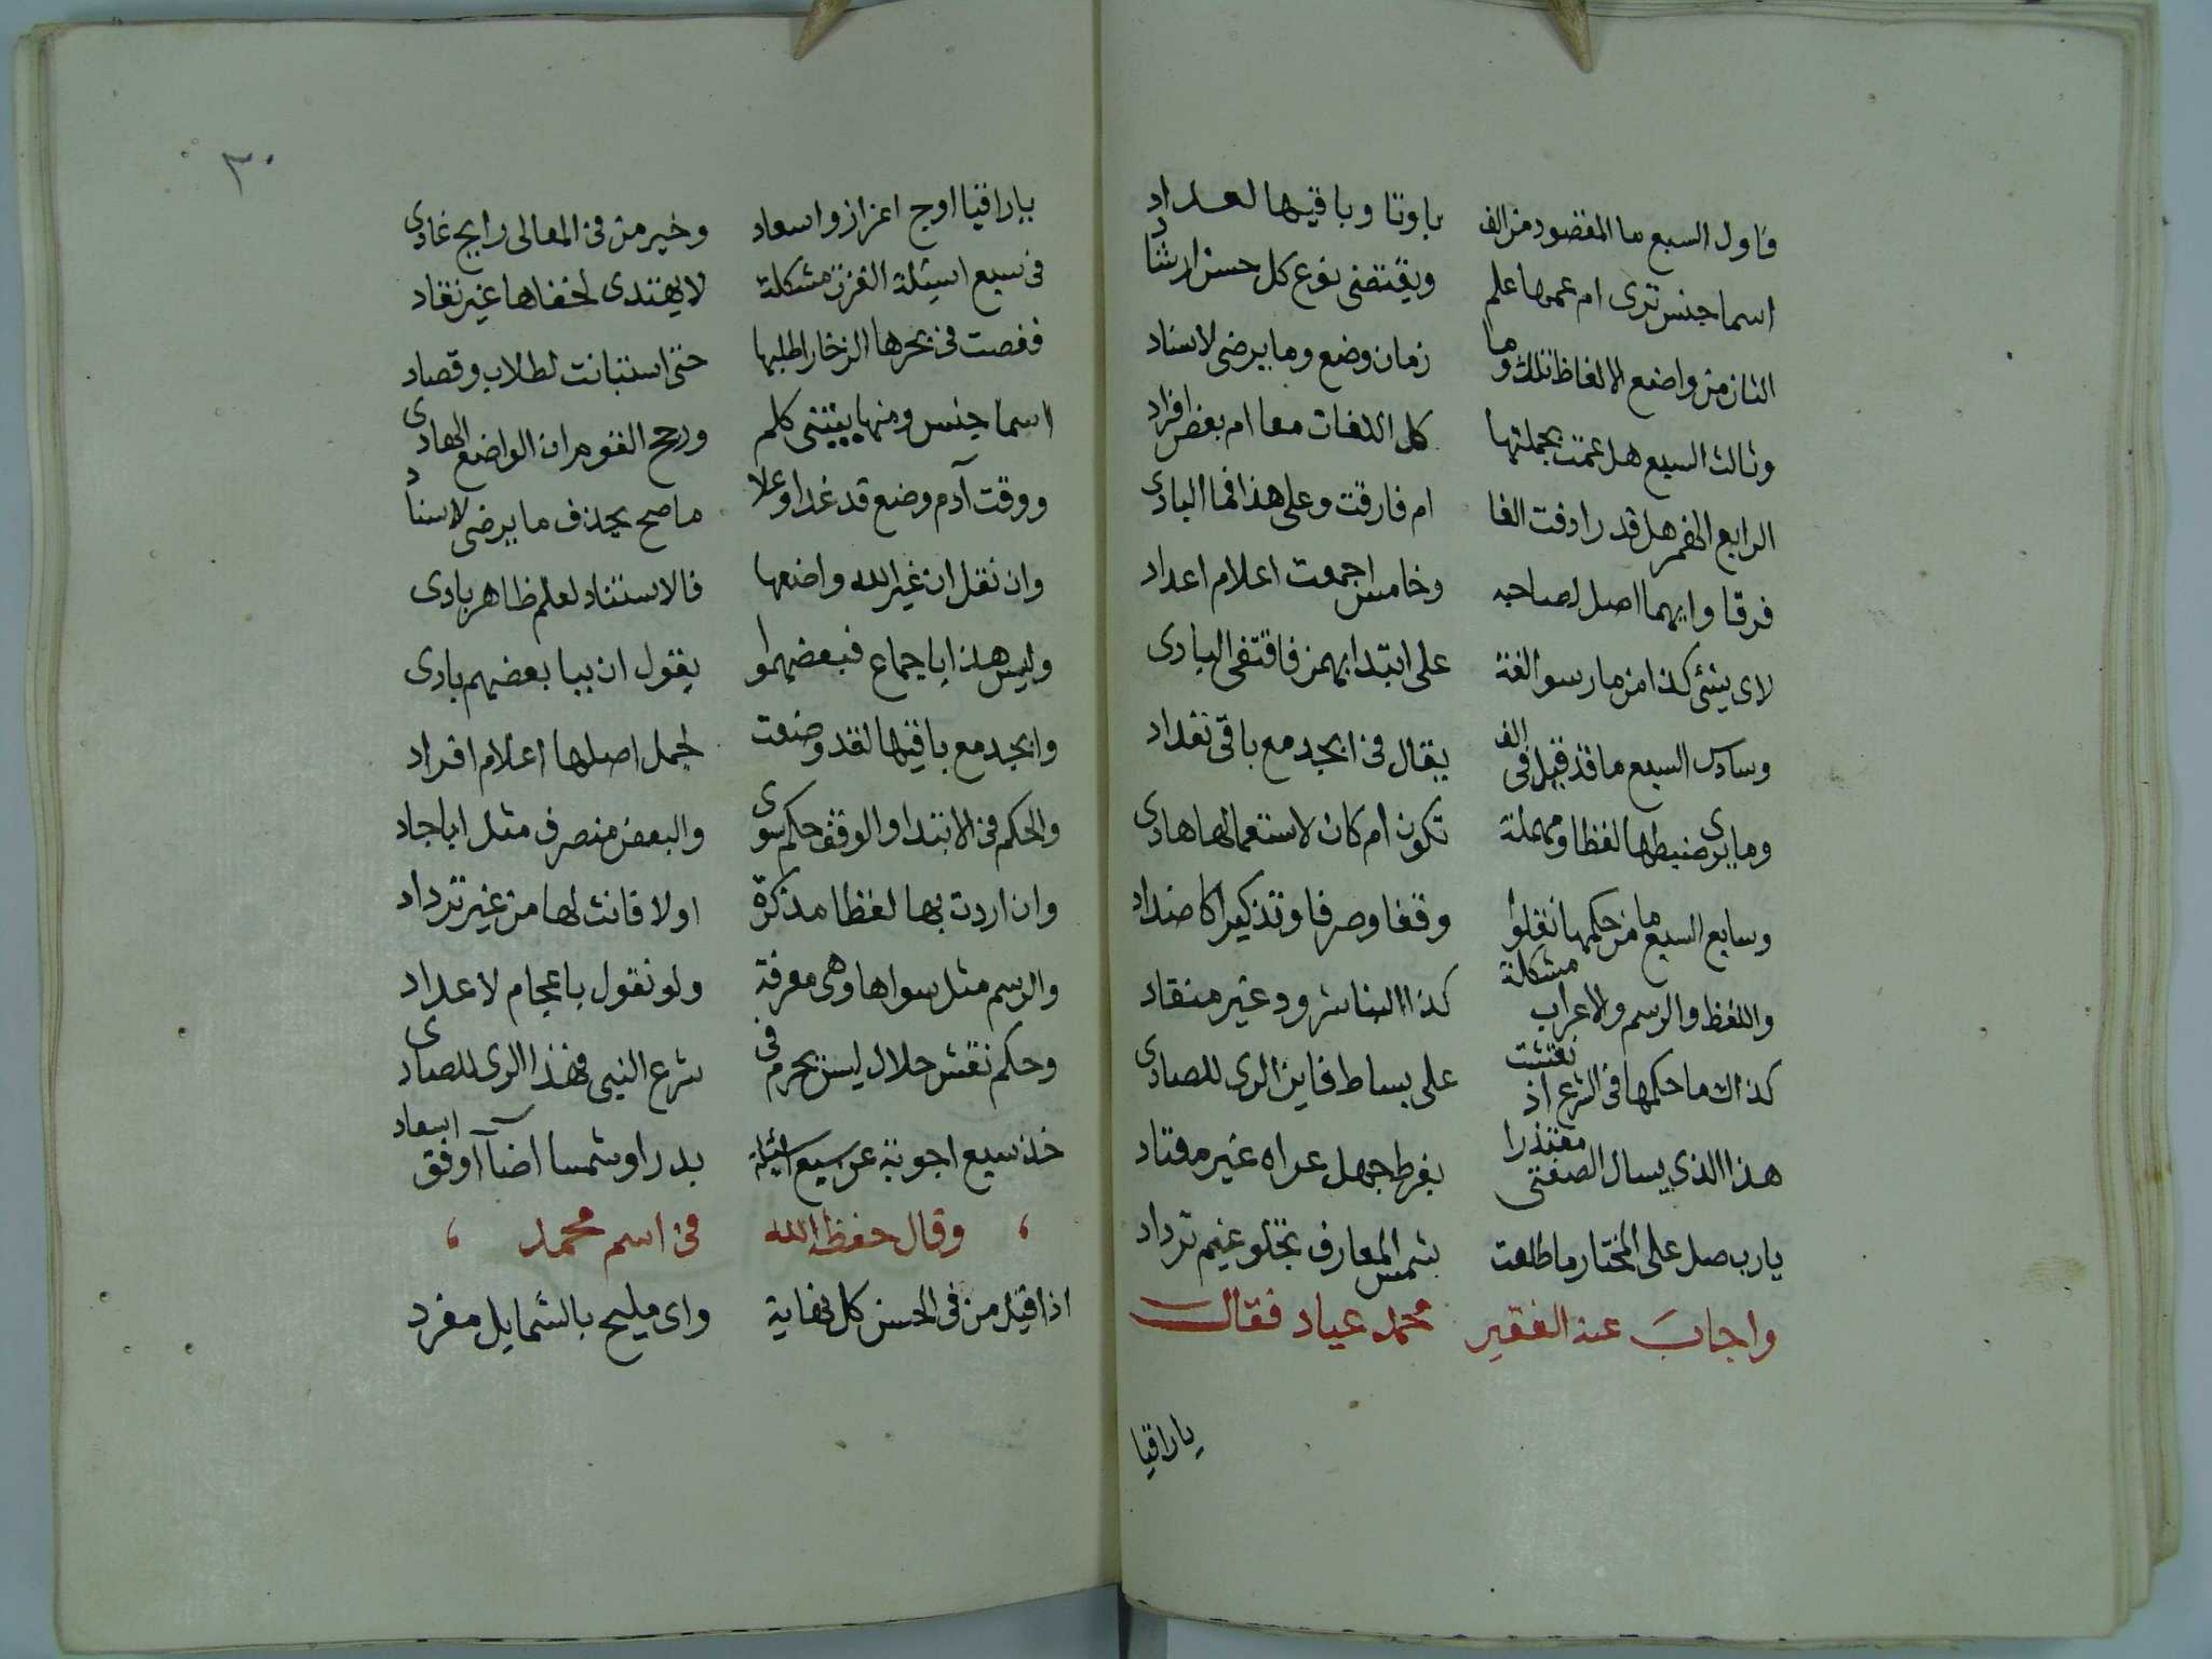 فاول السبع ما المقصود من الف باوتا وباقيها لعداد
اسما جنس ترى ام عمها علم ويقتضى نوع كل حسن ارشاد
الثان من واضع الالفاظ تلك وما زمان وضع وما يرضى لاسناد
وثالث السبع هل عمت بجملتها كل اللغات معا ام بعض افراد
الرابع الهمز هل قد رادفت الفا ام فارقت وعلى هذا فما البادى
فرقا وايهما اصل لصاحبه وخامس اجمعت اعلام اعداد
لاى شئ كذا من مارسوا لغة على ابتدا بهمز فاقتفى البادى
وسادس السبع ما قد قيل فى الف يقال فى ابجد مع باقى تعداد
وما يرى ضبطها لفظا ومهملة تكون ام كان لاستعمالها هادى
وسابع السبع ما من حكمها نقلوا وقفا وصرفا وتذكيرا كاضداد
واللفظ والرسم والاعراب مشكلة كذا البنا شرود غير منقاد
كذاك ما حكمها فى الشرع اذ نقشت على بساط فاين الرى للصادى
هذا الذي يسال الصفتى معتذرا بفرط جهل عراه غير معتاد
يارب صل على المختار ما طلعت شمس المعارف تجلو غيم ترداد
واجاب عنه الفقير محمد عياد فقال
ياراقيا
٣٠
ياراقيا اوج اعزاز واسعاد وخير من فى المعالى رايح غادى
فى سبع اسئلة الغزن مشكلة لا يهتدى لخفاها غير نقاد
فغصت فى بحرها الزخار اطلبها حتى استبانت لطلاب وقصاد
اسما جنس ومنها يبتنى كلم ورجح القوم ان الواضع الهادى
ووقت آدم وضع قد غدا وعلا ما صح يحذف ما يرضى لاسناد
وان نقل ان غير الله واضعها فالاستناد لعلم ظاهر بادى
وليس هذا باجماع فبعضهموا يقول ان ببا بعضهم بادى
وابجد مع باقيها لقد وضعت لجمل اصلها اعلام افراد
والحكم فى الابتدا والوقف حكم سوى والبعض منصرف مثل اباجاد
وان اردت بها لفظا مذكرة اولا فانث لها من غير ترداد
والرسم مثل سواها وهى معرفة ولو نقول باعجام لاعداد
وحكم نقش حلال ليس يحرم فى شرع النبى فهذا الرى للصادى
خذ سبع اجوبة عن سبع اسئلة بدرا وشمسا اضاآ اوفق اسعاد
، وقال حفظه الله فى اسم محمد ،
اذا قيل من فى الحسن كل نهاية واى مليح بالشمايل مفرد